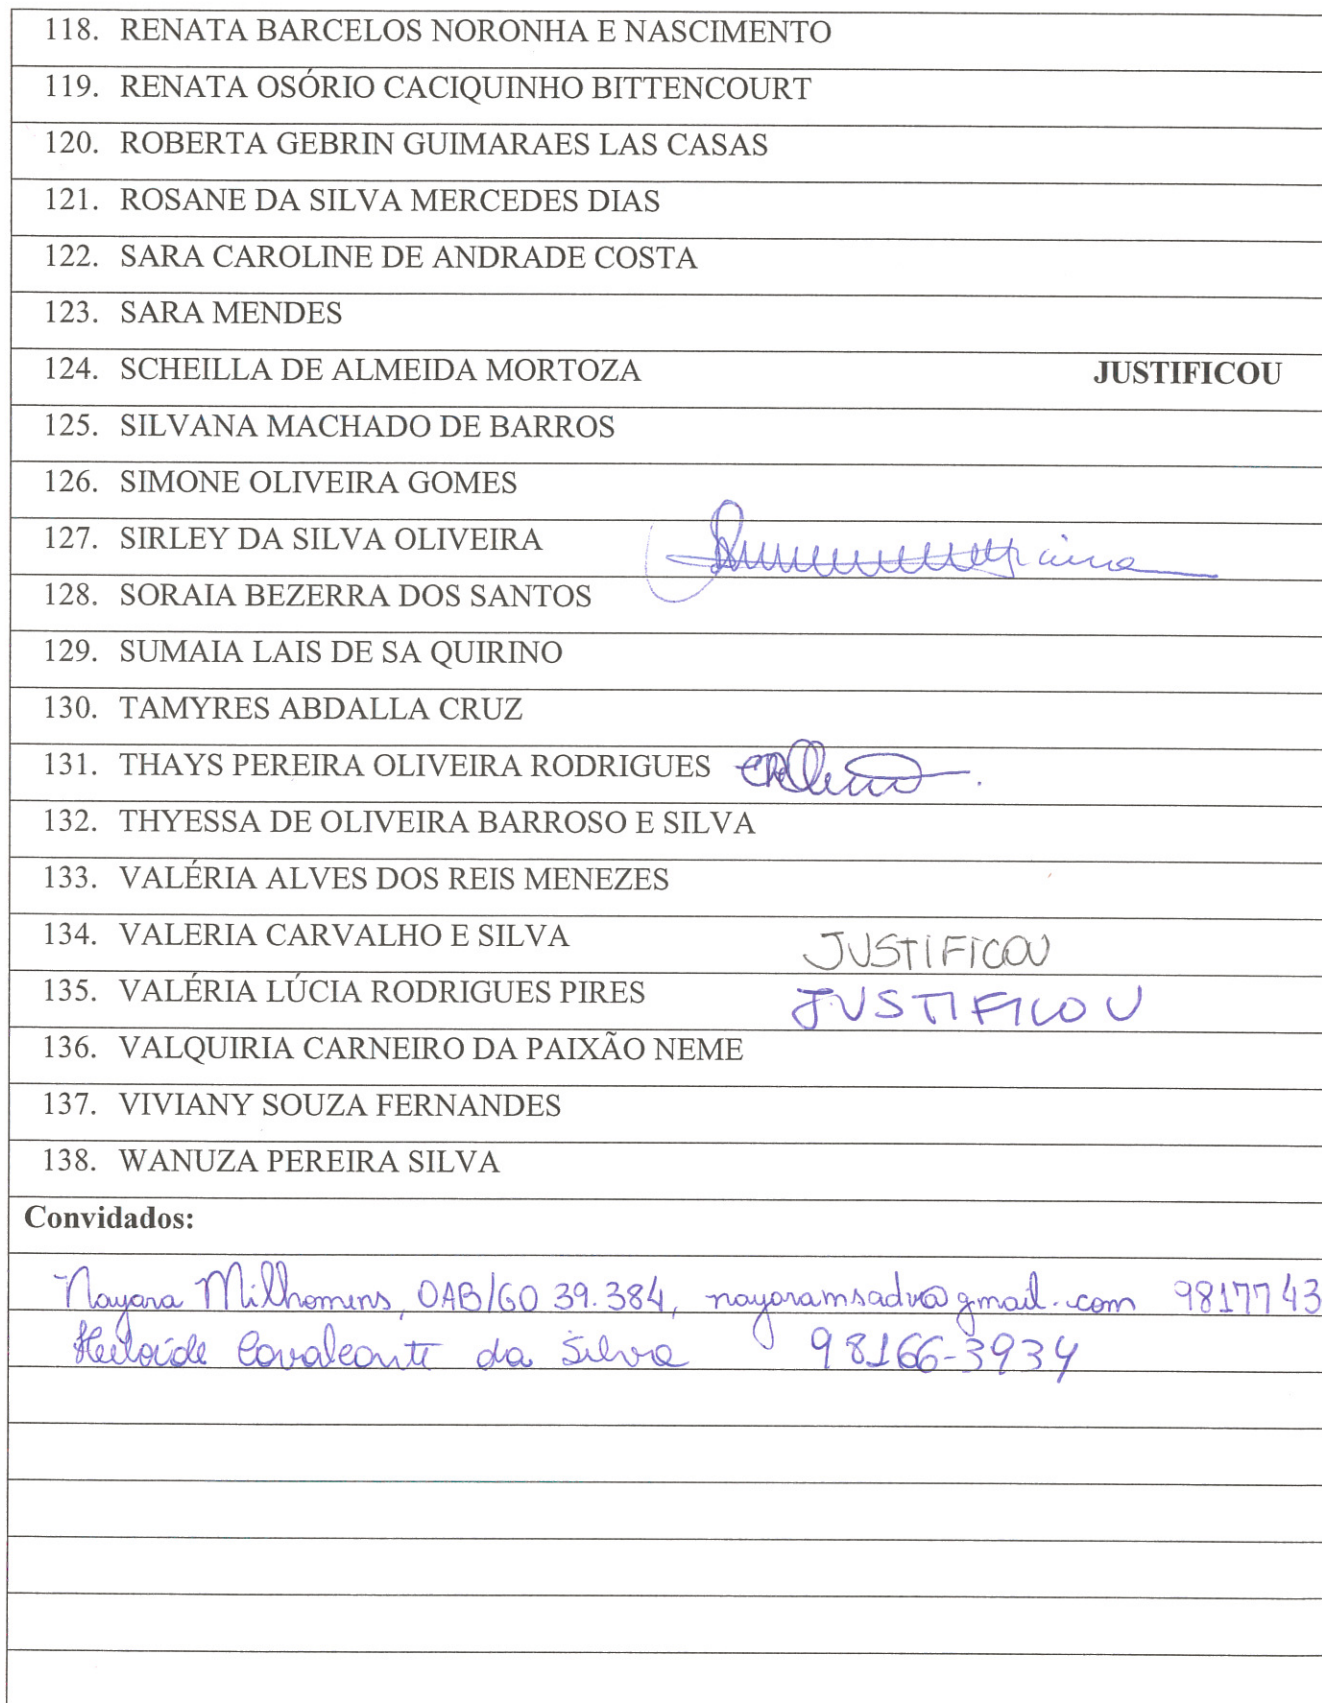 118. RENATA BARCELOS NORONHA E NASCIMENTO
119. RENATA OSÓRIO CACIQUINHO BITTENCOURT
120. ROBERTA GEBRIN GUIMARAES LAS CASAS
121. ROSANE DA SILVA MERCEDES DIAS
122. SARA CAROLINE DE ANDRADE COSTA
123. SARA MENDES
124. SCHEILLA DE ALMEIDA MORTOZA JUSTIFICOU
125. SILVANA MACHADO DE BARROS
126. SIMONE OLIVEIRA GOMES
127. SIRLEY DA SILVA OLIVEIRA
128. SORAIA BEZERRA DOS SANTOS
129. SUMAIA LAIS DE SA QUIRINO
130. TAMYRES ABDALLA CRUZ
131. THAYS PEREIRA OLIVEIRA RODRIGUES
132. THYESSA DE OLIVEIRA BARROSO E SILVA
133. VALÉRIA ALVES DOS REIS MENEZES
134. VALERIA CARVALHO E SILVA JUSTIFICOU
135. VALÉRIA LÚCIA RODRIGUES PIRES JUSTIFICOU
136. VALQUIRIA CARNEIRO DA PAIXÃO NEME
137. VIVIANY SOUZA FERNANDES
138. WANUZA PEREIRA SILVA
Convidados:
Nayara Milhomens, OAB/GO 39.384, nayaramsadv@gmail.com 9817743
Heiloíde Cavalcante da Silva 98166-3934